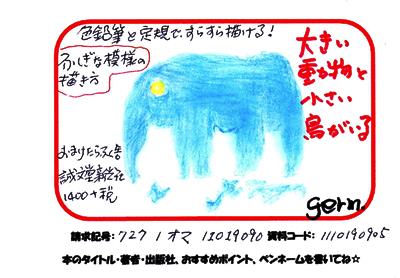 色鉛筆と定規ですらすら描ける!
ふしぎな模様の
描き方
大きい
重な物と
小さい
鳥がいる
おまけたらふく舎
誠文堂新光社
1400+税
germ
請求記号: 727 1 オマ 11019090 資料コード: 1110190905
本のタイトル・著者・出版社、おすすめポイント、ペンネームを書いてね☆